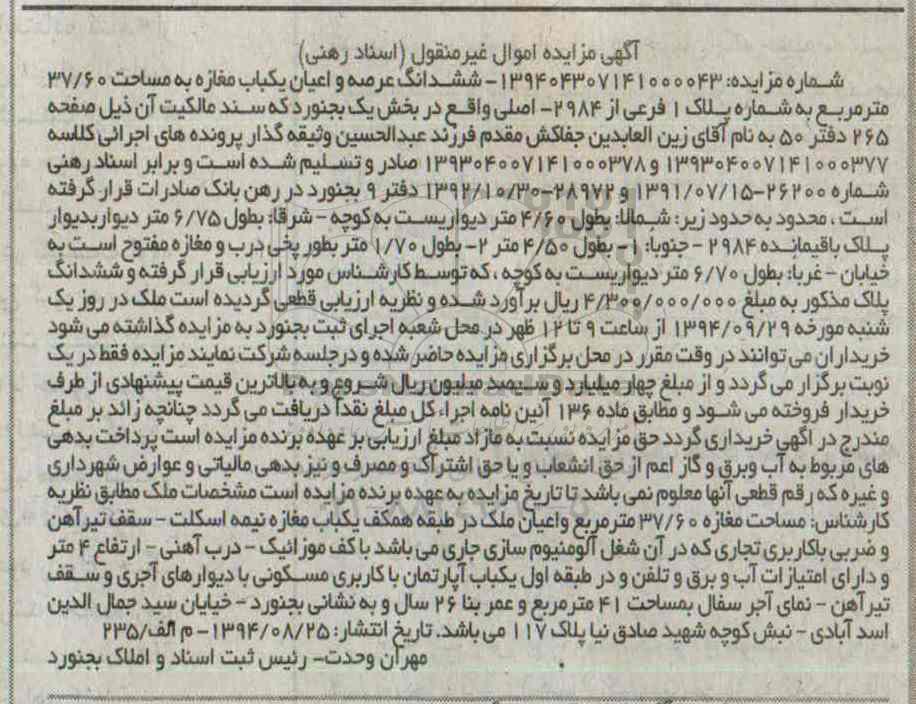 آگهی مزایده اموال غیرمنقول (اسناد رهنی)
شماره مزایده: ۱۳۹۴۰۴۳۰۷۱۴۱۰۰۰۰۴۳- ششدانگ عرصه و اعیان یکباب مغازه به مساحت ۳۷/۶۰
مترمربع به شماره پلاک ۱ فرعی از ۲۹۸۴- اصلی واقع در بخش یک بجنورد که سند مالکیت آن ذیل صفحه
۲۶۵ دفتر ۵۰ به نام آقای زین العابدین جفاکش مقدم فرزند عبدالحسین وثیقه گذار پرونده های اجرائی کلاسه
۱۳۹۳۰۴۰۰۷۱۴۱۰۰۰۳۷۷ و ۱۳۹۳۰۴۰۰۷۱۴۱۰۰۰۳۷۸ صادر و تسلیم شده است و برابر اسناد رهنی
شماره ۲۶۲۰۰-۱۳۹۱/۰۷/۱۵ و ۲۸۹۷۲-۱۳۹۲/۱۰/۳۰ دفتر ۹ بجنورد در رهن بانک صادرات قرار گرفته
است، محدود به حدود زیر: شمالا: بطول ۴/۶۰ متر دیواریست به کوچه - شرقا: بطول ۶/۷۵ متر دیواربدیوار
پلاک باقیمانده ۲۹۸۴ - جنوبا: ۱- بطول ۴/۵۰ متر ۲- بطول ۱/۷۰ متر بطور پخی درب و مغازه مفتوح است به
خیابان - غربا: بطول ۶/۷۰ متر دیواریست به کوچه، که توسط کارشناس مورد ارزیابی قرار گرفته و ششدانگ
پلاک مذکور به مبلغ ۴/۳۰۰/۰۰۰/۰۰۰ ریال برآورد شده و نظریه ارزیابی قطعی گردیده است ملک در روز یک
شنبه مورخه ۱۳۹۴/۰۹/۲۹ از ساعت ۹ تا ۱۲ ظهر در محل شعبه اجرای ثبت بجنورد به مزایده گذاشته می شود
خریداران می توانند در وقت مقرر در محل برگزاری مزایده حاضر شده و در جلسه شرکت نمایند مزایده فقط در یک
نوبت برگزار می گردد و از مبلغ چهار میلیارد و سیصد میلیون ریال شروع و به بالاترین قیمت پیشنهادی از طرف
خریدار فروخته می شود و مطابق ماده ۱۳۶ آئین نامه اجرا، کل مبلغ نقداً دریافت می گردد چنانچه زائد بر مبلغ
مندرج در اگهی خریداری گردد حق مزایده نسبت به مازاد مبلغ ارزیابی بر عهده برنده مزایده است پرداخت بدهی
های مربوط به آب وبرق و گاز اعم از حق انشعاب و یا حق اشتراک و مصرف و نیز بدهی مالیاتی و عوارض شهرداری
و غیره که رقم قطعی آنها معلوم نمی باشد تا تاریخ مزایده به عهده برنده مزایده است مشخصات ملک مطابق نظریه
کارشناس: مساحت مغازه ۳۷/۶۰ مترمربع واعیان ملک در طبقه همکف یکباب مغازه نیمه اسکلت - سقف تیرآهن
و ضربی باکاربری تجاری که در آن شغل آلومنیوم سازی جاری می باشد با کف موزائیک - درب آهنی - ارتفاع ۴ متر
و دارای امتیازات آب و برق و تلفن و در طبقه اول یکباب آپارتمان با کاربری مسکونی با دیوارهای آجری و سقف
تیرآهن - نمای آجر سفال بمساحت ۴۱ مترمربع و عمر بنا ۲۶ سال و به نشانی بجنورد - خیابان سید جمال الدین
اسد آبادی - نبش کوچه شهید صادق نیا پلاک ۱۱۷ می باشد. تاریخ انتشار: ۱۳۹۴/۰۸/۲۵- م الف/۲۳۵
مهران وحدت- رئیس ثبت اسناد و املاک بجنورد